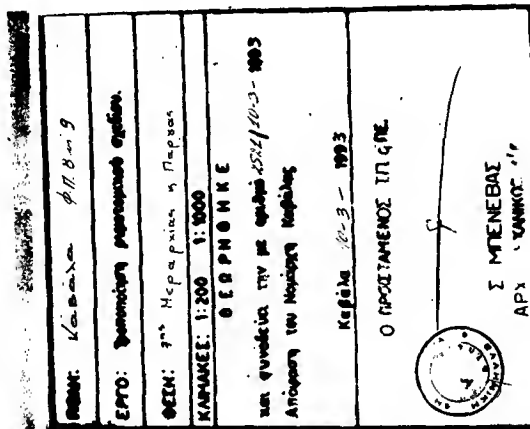 ΠΟΛΗ: Καβάλα Φ.Π. 8 и 9
ΕΡΓΟ: Τροποποίηση ρυμοτομικού σχεδίου.
ΘΕΣΗ: 7ης Μεραρχίας η Πάργας
ΚΛΙΜΑΚΕΣ: 1:200 1:1000
ΘΕΩΡΗΘΗΚΕ
και συνοδεύει την με αριθμό 10-3-1993
Απόφαση του Νομάρχη Καβάλας
Καβάλα 10-3-1993
Ο ΠΡΟΙΣΤΑΜΕΝΟΣ Τ.Π. & ΠΕ.
Σ ΜΠΕΝΕΒΑΣ
ΑΡΧ